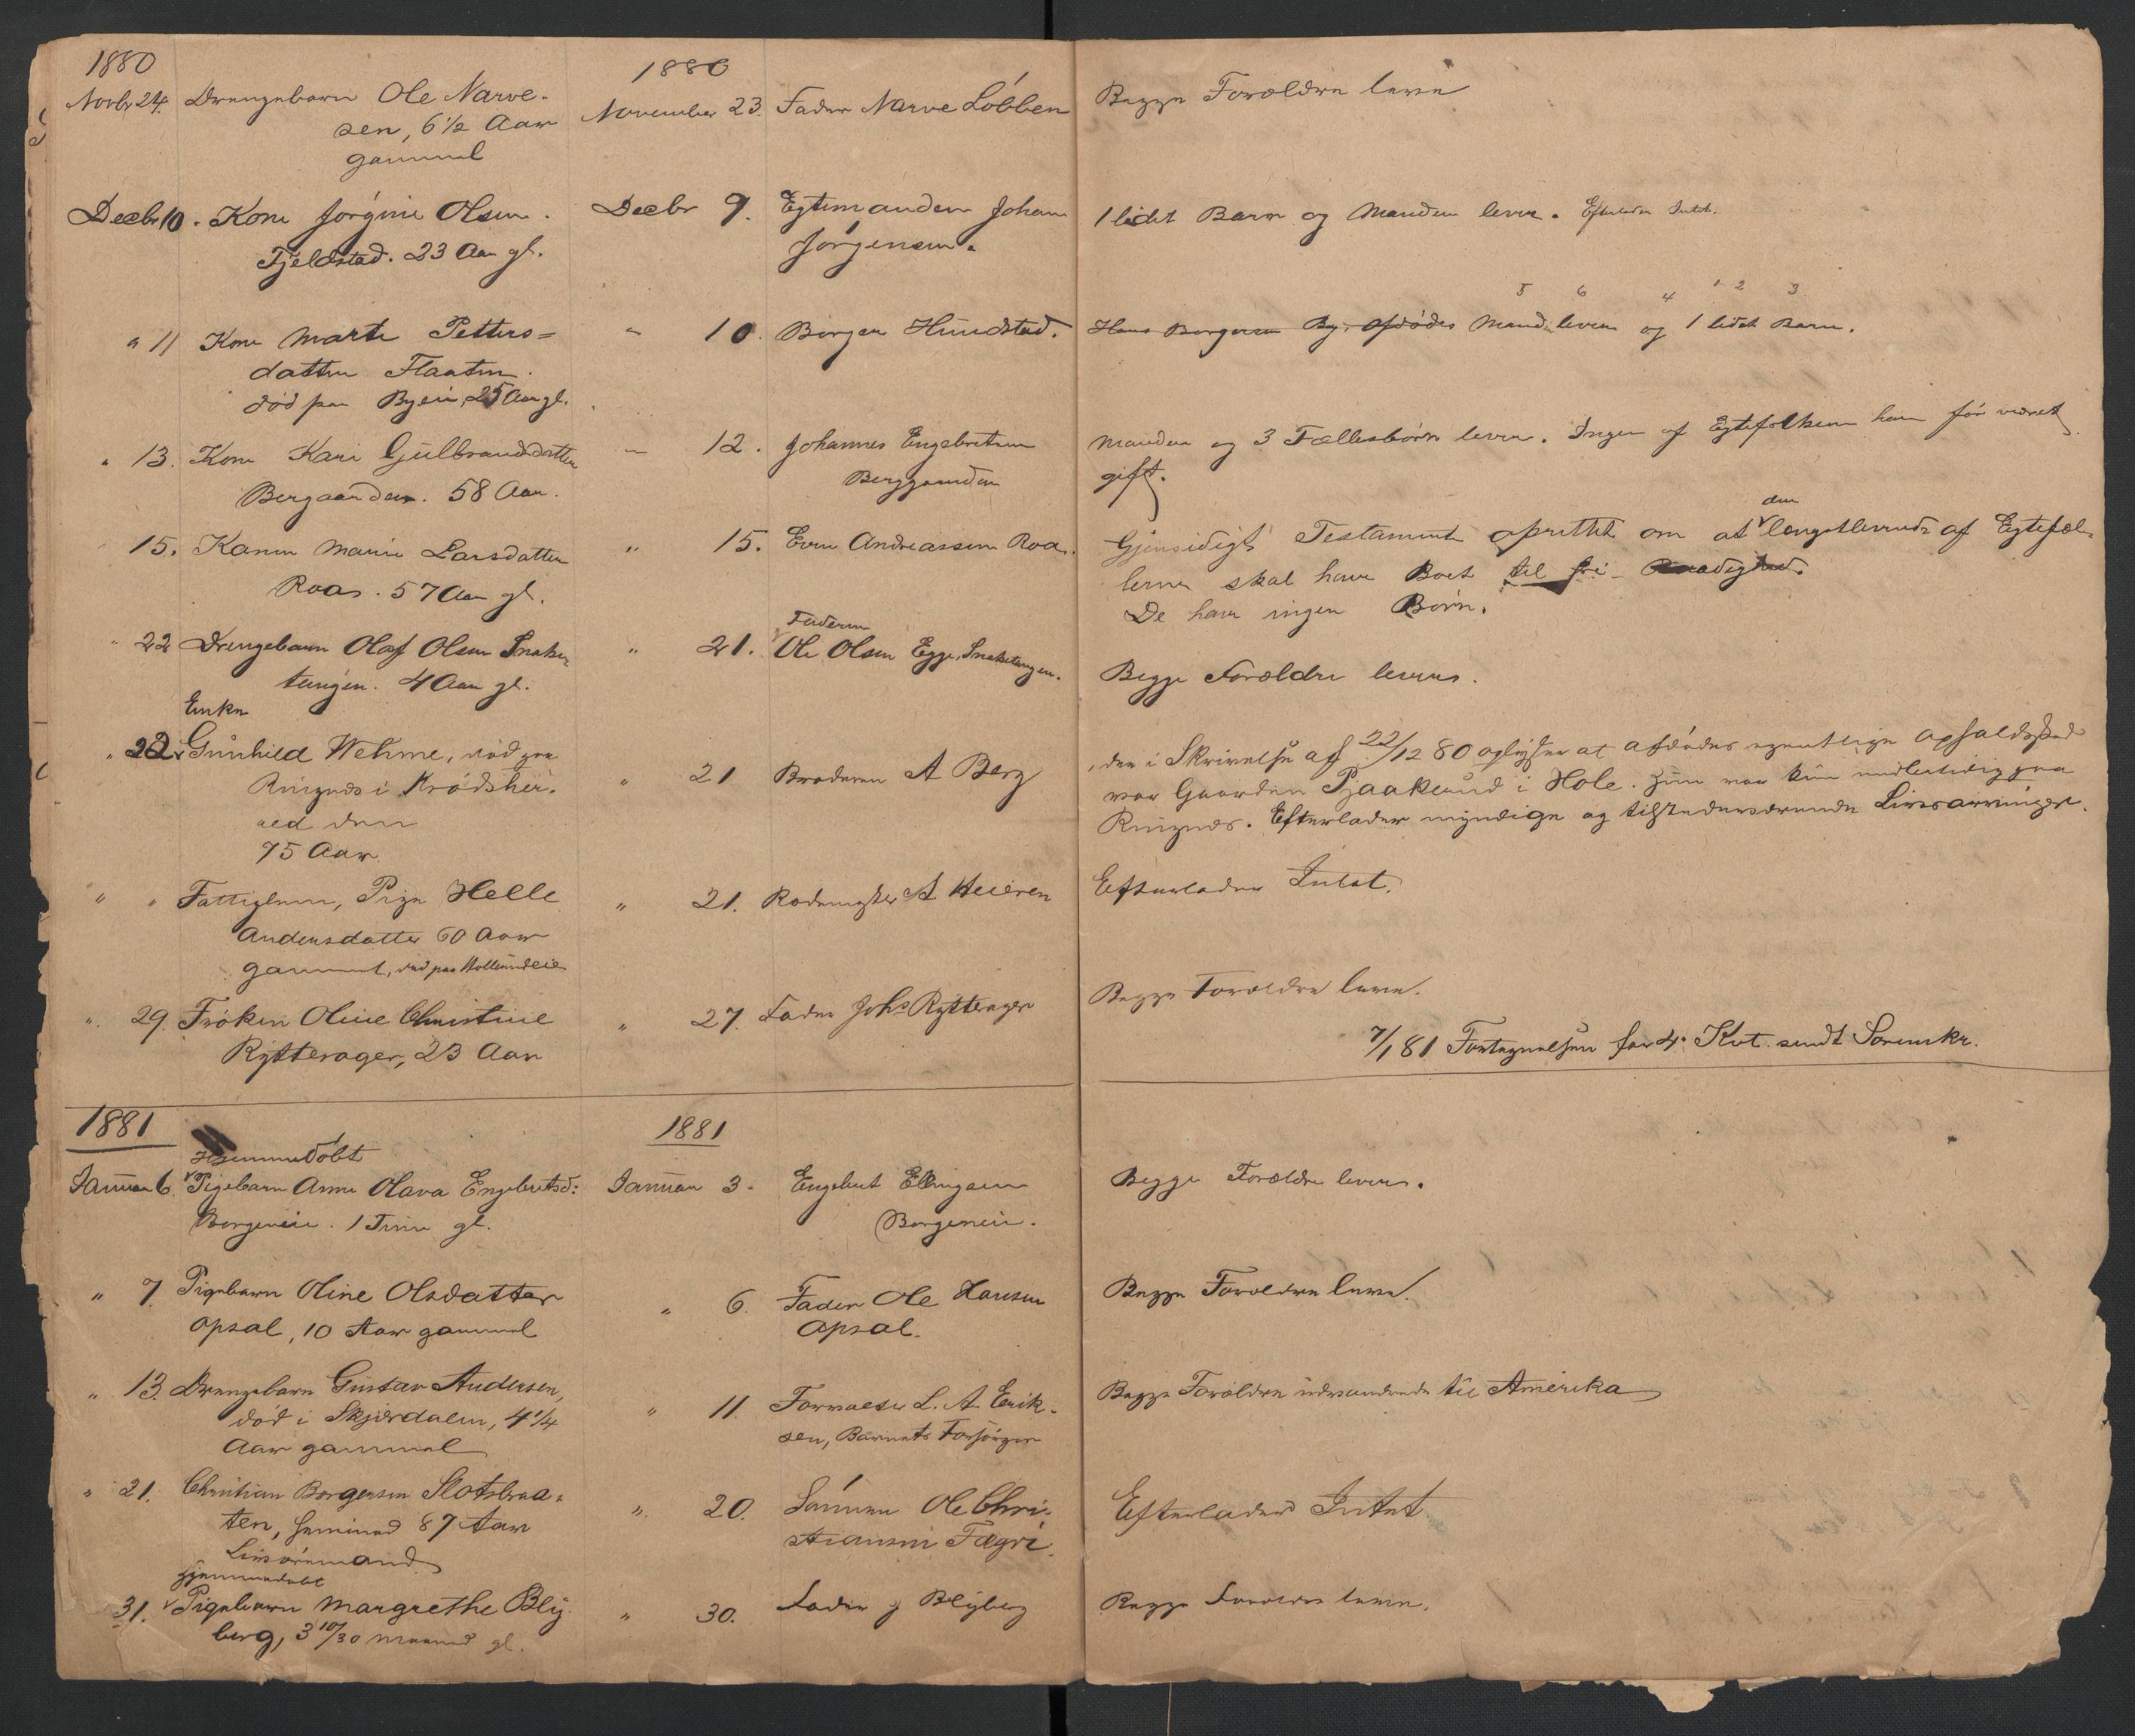 1880
1880
Novbr 24. Drengebarn Ole Narve-
sen, 6 1/2 Aar
gammel
November 23. Fader Narve Löbben
Begge Forældre leve
Decbr 10. Kone Jørgine Olsen
Fjeldstad. 23 Aar gl.
Decbr 9. Egtemanden Johan
Jørgensen.
1 lidet Barn og Manden lever. Efterlader Intet.
" 11 Kone Marte Petters=
datter Flaaten.
död paa Byeie, 25 Aar gl.
" 10. Borger Hundstad.
5 6 4 1 2 3
Hans Borgersen By. Afdödes Mand lever og 1 lidet Barn.
" 13. Kone Kari Gulbrandsdatter
Bergaarden. 58 Aar.
" 12. Johannes Engebretsen
Berggaarden
Manden og 3 Fællesbörn lever. Ingen af Egtefolkene har för været
gift.
" 15. Karen Marie Larsdatter
Roa. 57 Aar gl.
" 15. Even Andreassen Roa.
den
Gjensidigt Testament oprettet om at længstlevende af Egtefæl-
lerne skal have Boet til fri Raadighed.
De have ingen Börn.
" 22 Drengebarn Olaf Olsen Snake-
tangen. 4 Aar gl.
" 21. Faderen
Ole Olsen Egge, Snaketangen.
Begge Forældre lever.
Enken
" 22. Gunhild Wehme, död paa
Ringnes i Krödsher.
ved den
75 Aar.
" 21 Broderen A Berg
, der i Skrivelse af 22/12 80 oplyser at afdödes egentlige opholdssted
var Gaarden Pjaakerud i Hole. Hun var kun midlertidig paa
Ringnes. Efterlader myndige og tilstedeværende Livsarvinger.
" " Fattiglem, Pige Helle
Andersdatter 60 Aar
gammel, död paa Hollerudeie
" 21. Rodemester A. Heieren
Efterlader Intet.
". 29. Fröken Oline Christine
Rytterager, 23 Aar
" 27. Fader Johs Rytterager
Begge Forældre leve.
7/1 81 Fortegnelsen for 4. Kvt. sendt Sorenskr.
1881
1881
Hjemmedöbt
Januar 6. Pigebarn Anne Olava Engebretsd:
Borgeneie. 1 Time gl.
Januar 3. Engebret Ellingsen
Borgeneie.
Begge Forældre lever.
" 7. Pigebarn Oline Olsdatter
Opsal, 10 Aar gammel
" 6. Fader Ole Hansen
Opsal.
Begge Forældre leve.
" 13. Drengebarn Gustav Andersen,
död i Skjærdalen, 4 1/4
Aar gammel
" 11. Formaster L. A. Erik-
sen, Barnets Forsörger
Begge Forældre udvandrede til Amerika
" 21. Christian Borgersen Slotsbraa-
ten, 87 Aar
". 20. Sönnen Ole Chri-
stiansen Fægri.
Efterlader Intet
Hjemmedöbt
31. Pigebarn Margrethe Bly-
berg, 3 10/30 Maaned gl.
" 30. Fader J Blyberg
Begge Forældre leve.